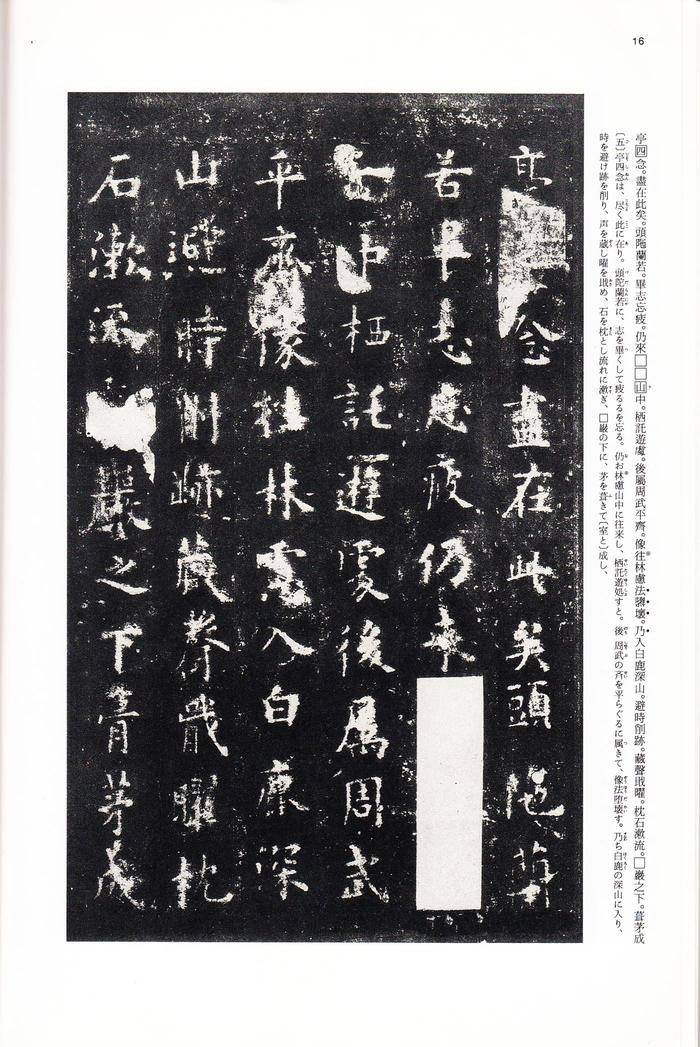 16
亭四念。盡在此矣。頭陁蘭若。畢志忘疲。仍來□□山中。栖託遊處。後屬周武平齊。像往林慮法墮壞。乃入白鹿深山。避時削跡。藏聲戢曜。枕石漱流。□巖之下。葺茅成
〔五〕亭四念は、尽く此に在り。頭陀蘭若に、志を畢くして疲るるを忘る。仍お林慮山中に往来し、栖託遊処すと。後 周武の斉を平らぐるに属きて、像法堕壊す。乃ち白鹿の深山に入り、
時を避け跡を削り、声を蔵し曜を戢め、石を枕とし流れに漱ぎ、□巌の下に、茅を葺きて〔室と〕成し、
亭念盡在此矣頭陁蘭
若畢志忘疲仍來
山中栖託遊處後屬周武
平齊像往林慮入白鹿深
山避時削跡藏聲戢曜枕
石漱流巖之下葺茅成